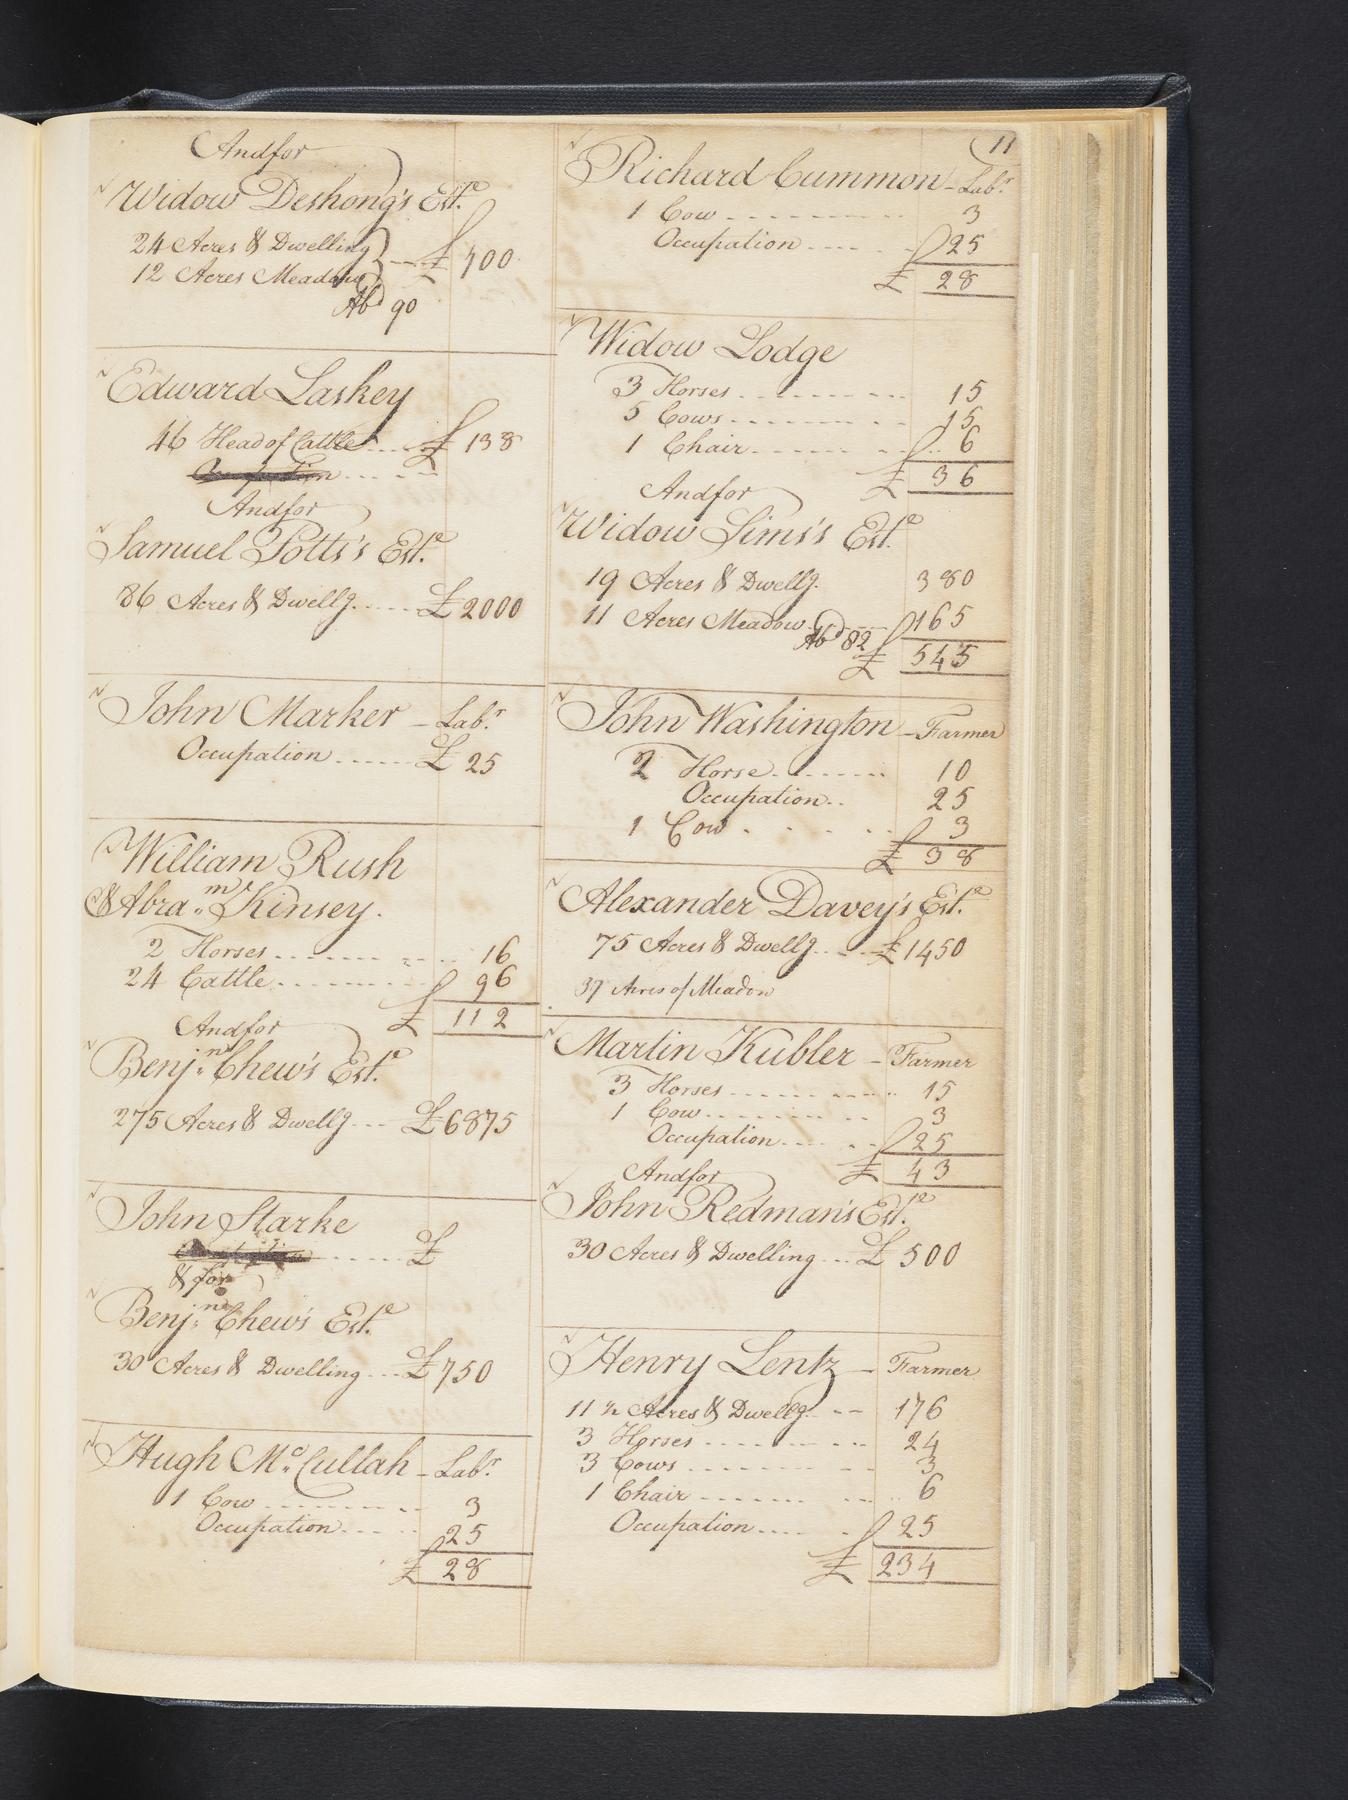 And for
Widow Deshong's Est.e
24 Acres & Dwelling
12 Acres Meadow £ 400
Ab.d 90
Edward Laskey
46 Head of Cattle £ 138
And for
Samuel Potts's Est.e
86 Acres & Dwellg. £ 2000
John Marker - Lab.r
Occupation £ 25
William Rush
& Abra.m Kinsey.
2 Horses 16
24 Cattle 96
£ 112
And for
Benj.n Chew's Est.e
275 Acres & Dwellg £ 6875
John Starke £
& for
Benj.n Chew's Est.e
30 Acres & Dwelling £ 750
Hugh Mc.Cullah - Lab.r
1 Cow 3
Occupation 25
£ 28
11
Richard Cummon - Lab.r
1 Cow 3
Occupation 25
£ 28
Widow Lodge
3 Horses 15
5 Cows 15
1 Chair 6
£ 36
And for
Widow Sims's Est.e
19 Acres & Dwellg. 380
11 Acres Meadow 165
Ab.d 82
£ 545
John Washington - Farmer
2 Horse 10
Occupation 25
1 Cow 3
£ 38
Alexander Davey's Est.e
75 Acres & Dwellg £ 1450
37 Acres of Meadow
Martin Kubler - Farmer
3 Horses 15
1 Cow 3
Occupation 25
£ 43
And for
John Redman's Est.e
30 Acres & Dwelling £ 500
Henry Lentz - Farmer
11 ½ Acres & Dwellg. 176
3 Horses 24
3 Cows 3
1 Chair 6
Occupation 25
£ 234